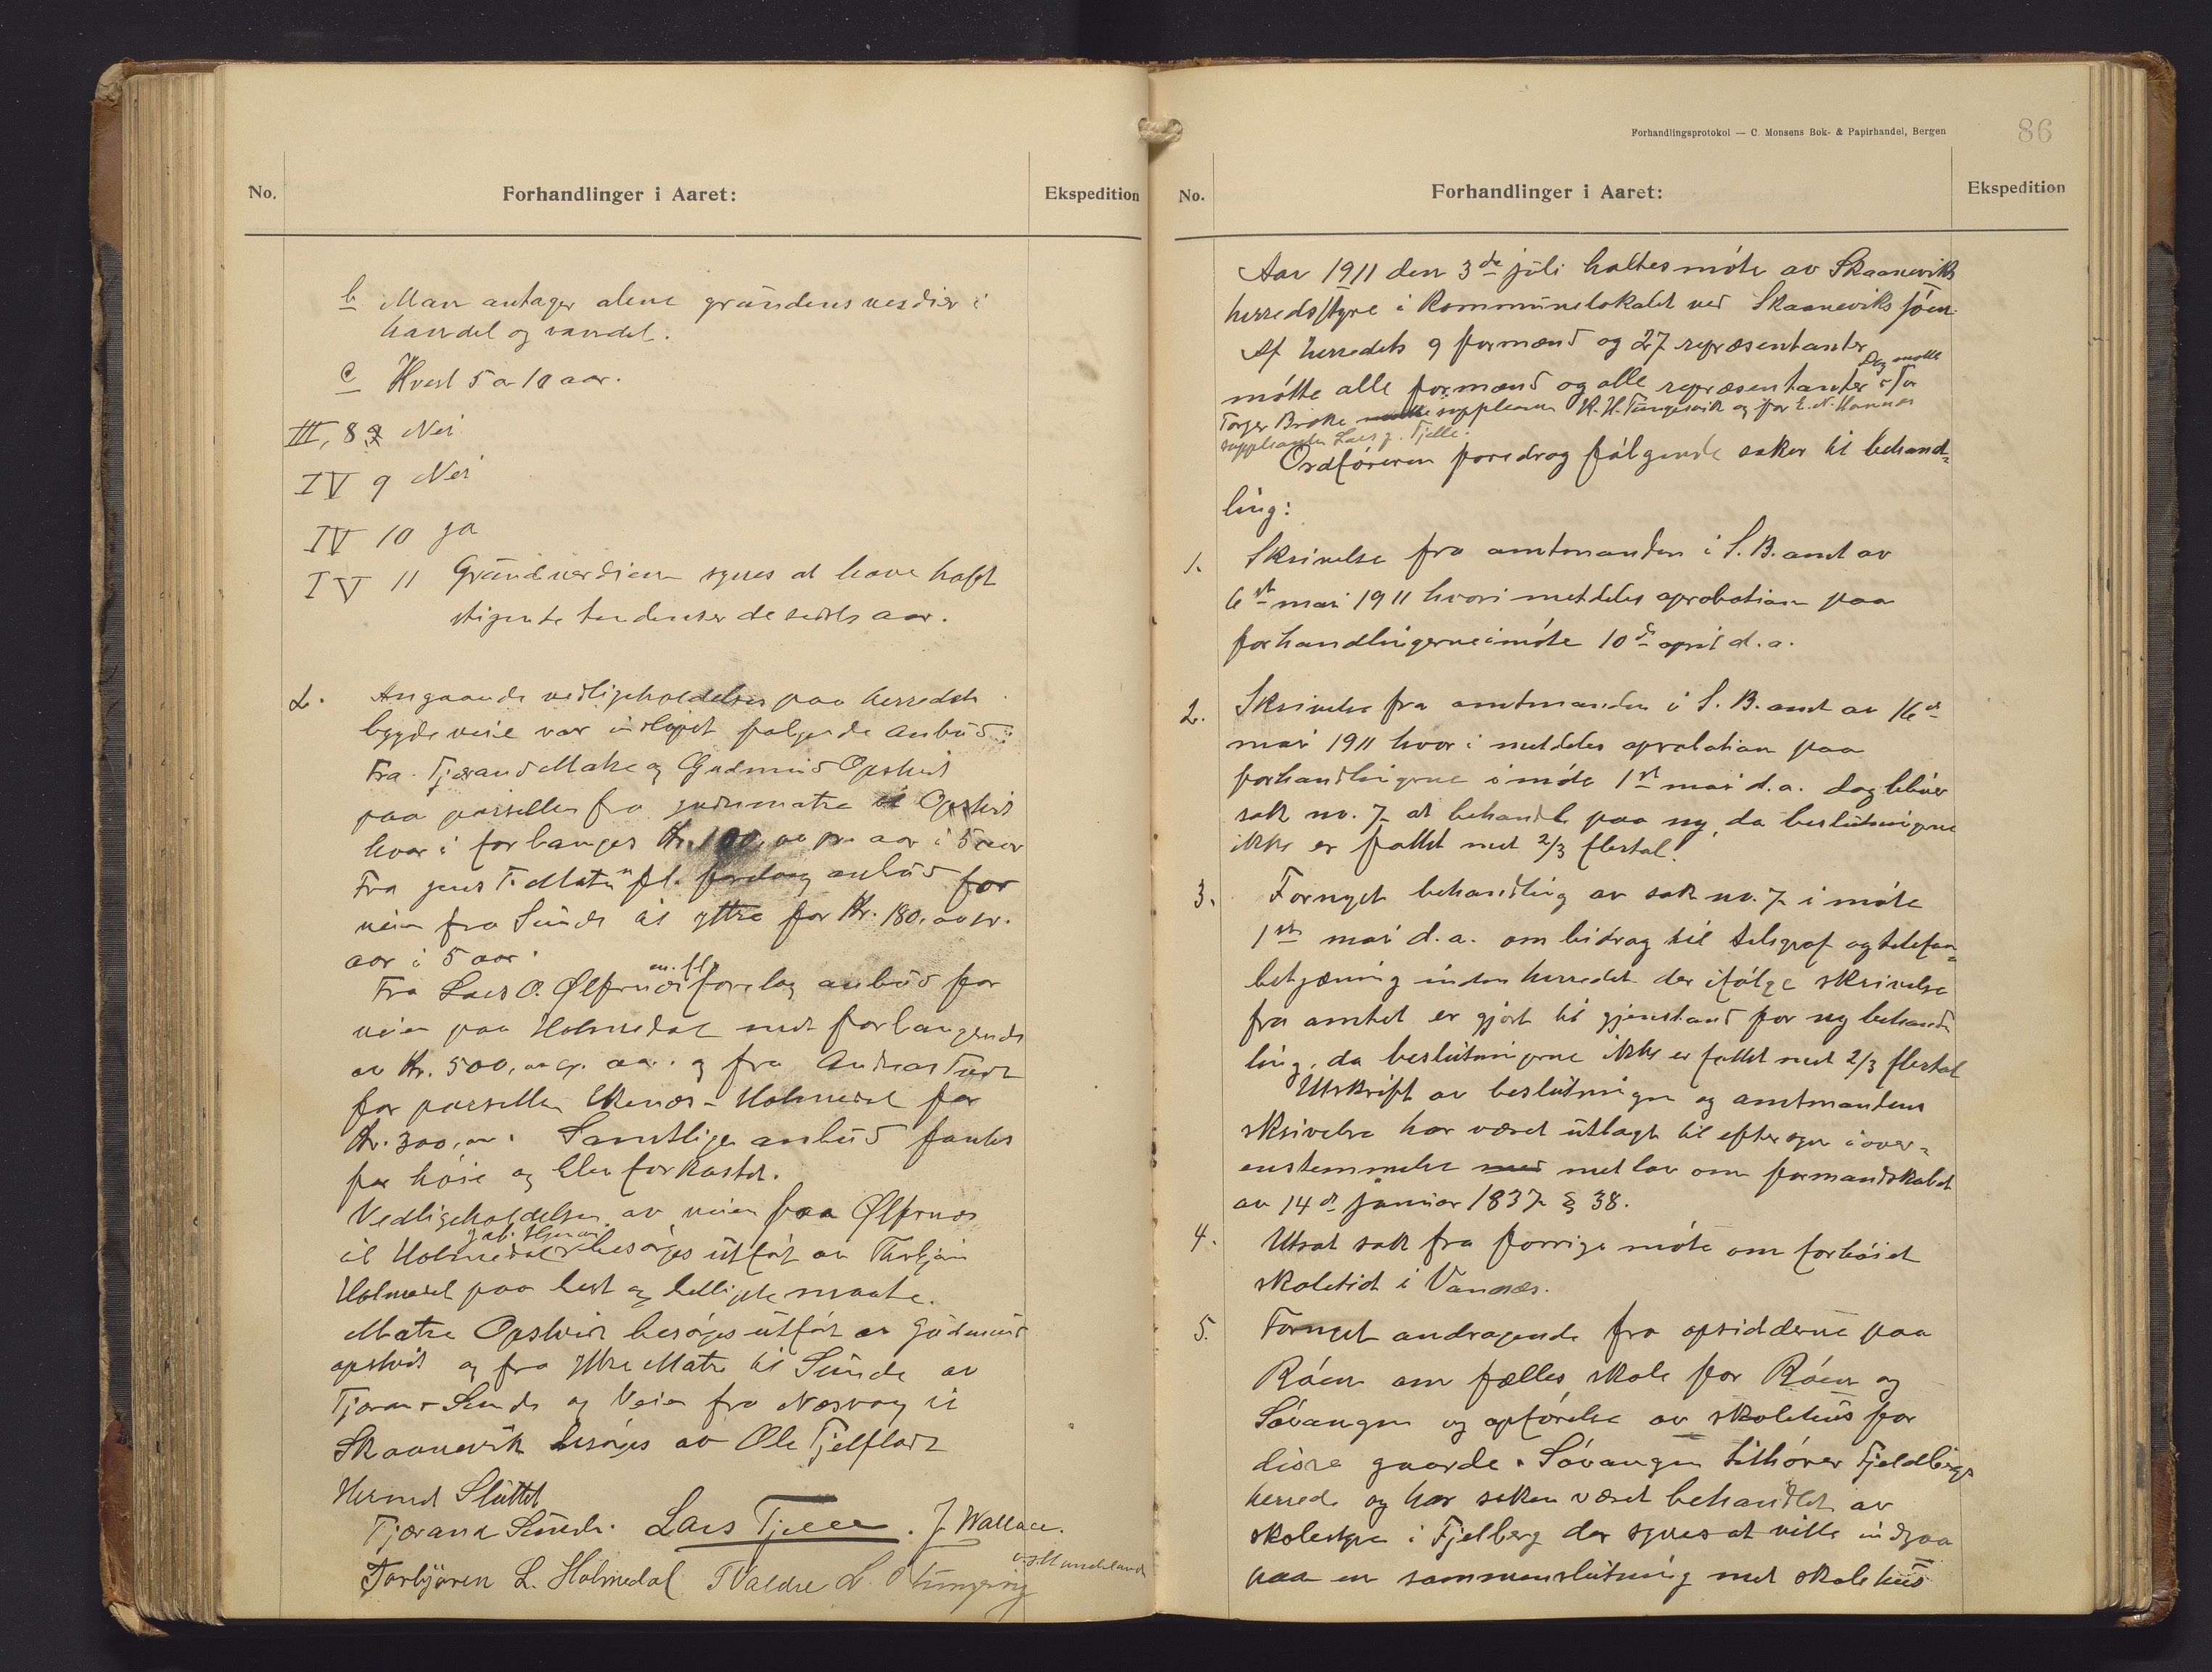 No.
Forhandlinger i Aaret:
Ekspedition
b Man antager alene grundens verdier i
handel og vandel.
c Hvert 5 a 10 aar.
III, 8 Nei
IV 9 Nei
IV 10 ja
IV 11 Grundverdien synes at have havt
stigende tendenser de sidste aar.
2. Angaaende vedligeholdelsen paa herredets
bygdeveie var indløpet følgende anbud:
Fra Tjerand Matre og Gudmund Opskvit
paa parsellen fra Indrematre til Opskvit
hvor i forlanges Kr. 100,00 pr. aar i 5 aar
Fra Jens T. Matre fl. forelaag anbud for
veien fra Sunde til yttre for Kr. 180,00 pr.
aar i 5 aar.
Fra Lars O. Ølfernes m. fl. forelaa anbud for
veien paa Holmedal med forlangende
av Kr. 500,00 pr. aar. og fra Andreas Tveit
for parsellen Ekenes - Holmedal for
Kr. 300,00. Samtlige anbud fantes
for høie og blev forkastet.
Vedligeholdelsen av veien fra Ølfernes
til Holmedal besørges utført av Thorbjørn
Holmedal paa best og billigste maate.
Matre Opskvit besørges utført av Gudmund
Opskvit og fra Ytre Matre til Sunde av
Tjeran Sunde og Veien fra Nesvaag til
Skaanevik besørges av Ole Fjelflaat
Hermed Sluttet
Tjerand Sunde. Lars Tjelle. J. Wallace.
Torbjøren L. Holmedal T Valdre L. O Tungesvig
Forhandlingsprotokol — C. Monsens Bok- & Papirhandel, Bergen
86
No.
Forhandlinger i Aaret:
Ekspedition
Aar 1911 den 3de juli holtes møte av Skaaneviks
herredsstyre i Kommunelokalet ved Skaaneviks sjøen.
Af herredets 9 formænd og 27 repræsentanter
møtte alle formænd og alle repræsentanter. Dog møtte for
Torger Broke suppleanten K. H. Tungesvik og for E. N. Hannes
suppleanten Lars J. Tjelle.
Ordføreren foredrog følgende saker til behand-
ling:
1. Skrivelse fra amtmanden i S. B. amt av
6te mai 1911 hvori meddeles aprobation paa
forhandlingerne i møte 10de april d. a.
2. Skrivelse fra amtmanden i S. B. amt av 16de
mai 1911 hvor i meddeles aprobation paa
forhandlingerne i møte 1ste mai d. a. dog bliver
sak no. 7 at behandle paa ny, da beslutningerne
ikke er fattet med 2/3 flertal.
3. Fornyet behandling av sak no. 7 i møte
1ste mai d. a. om bidrag til telegraf og telefon-
betjening inden herredet der ifølge skrivelse
fra amtet er gjort til gjenstand for ny behand
ling, da beslutningerne ikke er fattet med 2/3 flertal
Utskrift av beslutningen og amtmandens
skrivelse har været utlagt til eftersyn i over-
enstemmelse med lov om formandskabet
av 14de januar 1837 § 38.
4. Utsat sak fra forrige møte om forhøiet
skoletid i Vannes.
5. Fornyet andragende fra opsidderne paa
Røen om fælles skole for Røen og
Søvangen og opførelse av skolehus for
disse gaarde. Søvangen tilhører Fjeldbergs
herred og har saken været behandlet av
skolestyre i Fjelberg der synes at ville indgaa
paa en sammenslutning med skolehus